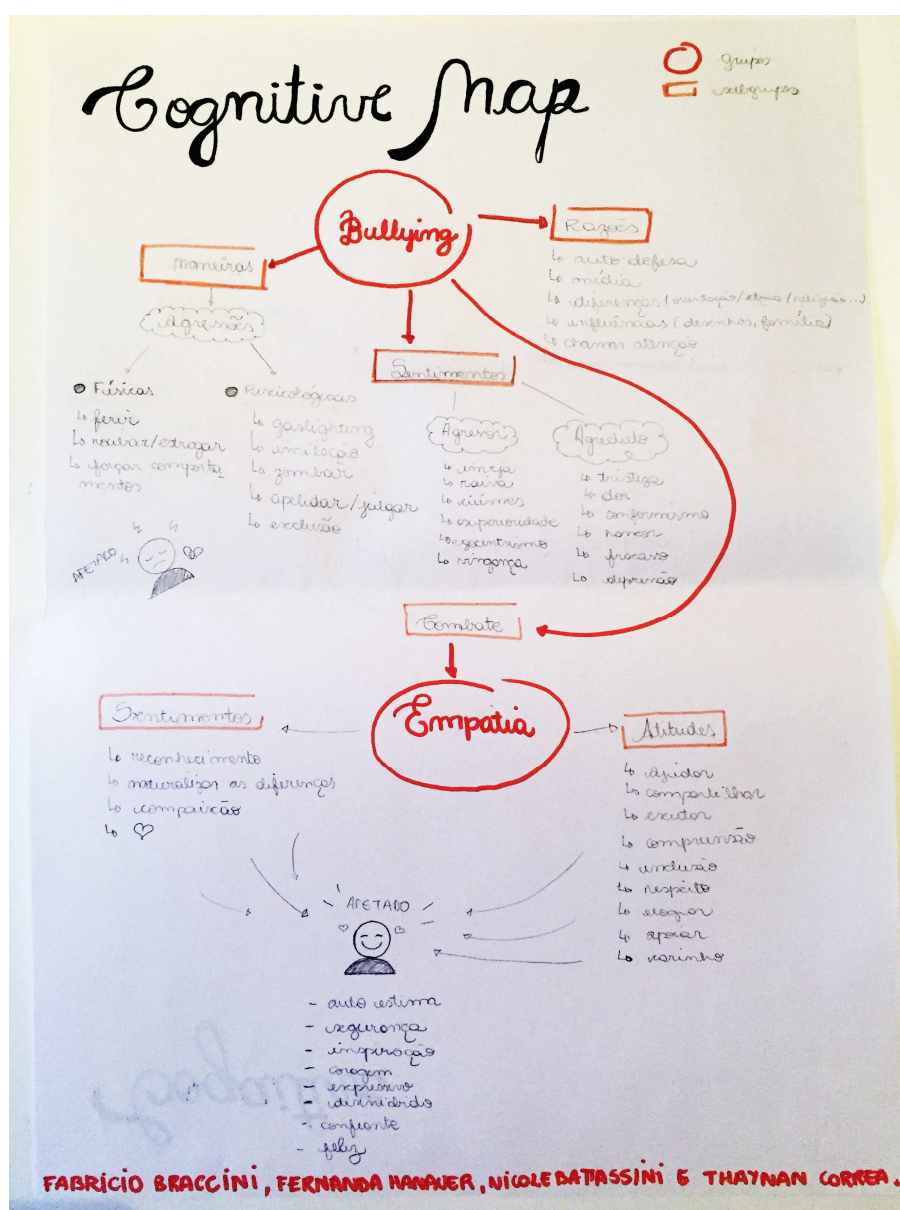 Cognitive Map
grupos
subgrupos
Bullying
Razões
↳ auto defesa
↳ mídia
↳ diferenças (orientação/etnia/religião...)
↳ influências (desenhos, família)
↳ chamar atenção
maneiras
Agressões
Físicas
↳ ferir
↳ roubar/estragar
↳ forçar comporta
mentos
Psicológicas
↳ gaslighting
↳ imitação
↳ zombar
↳ apelidar/julgar
↳ exclusão
AFETADO
Sentimentos
Agressor
↳ inveja
↳ raiva
↳ ciúmes
↳ superioridade
↳ egocentrismo
↳ vingança
Agredido
↳ tristeza
↳ dor
↳ conformismo
↳ rancor
↳ fracasso
↳ depressão
Combate
Empatia
Sentimentos
↳ reconhecimento
↳ naturalizar as diferenças
↳ compaixão
↳ ♡
Atitudes
↳ ajudar
↳ compartilhar
↳ escutar
↳ compreensão
↳ inclusão
↳ respeito
↳ elogiar
↳ apoiar
↳ carinho
AFETADO
- auto estima
- segurança
- inspiração
- coragem
- expressivo
- desinibido
- confiante
- feliz
FABRÍCIO BRACCINI, FERNANDA HANAUER, NICOLE BATTASSINI E THAYNAN CORREA.